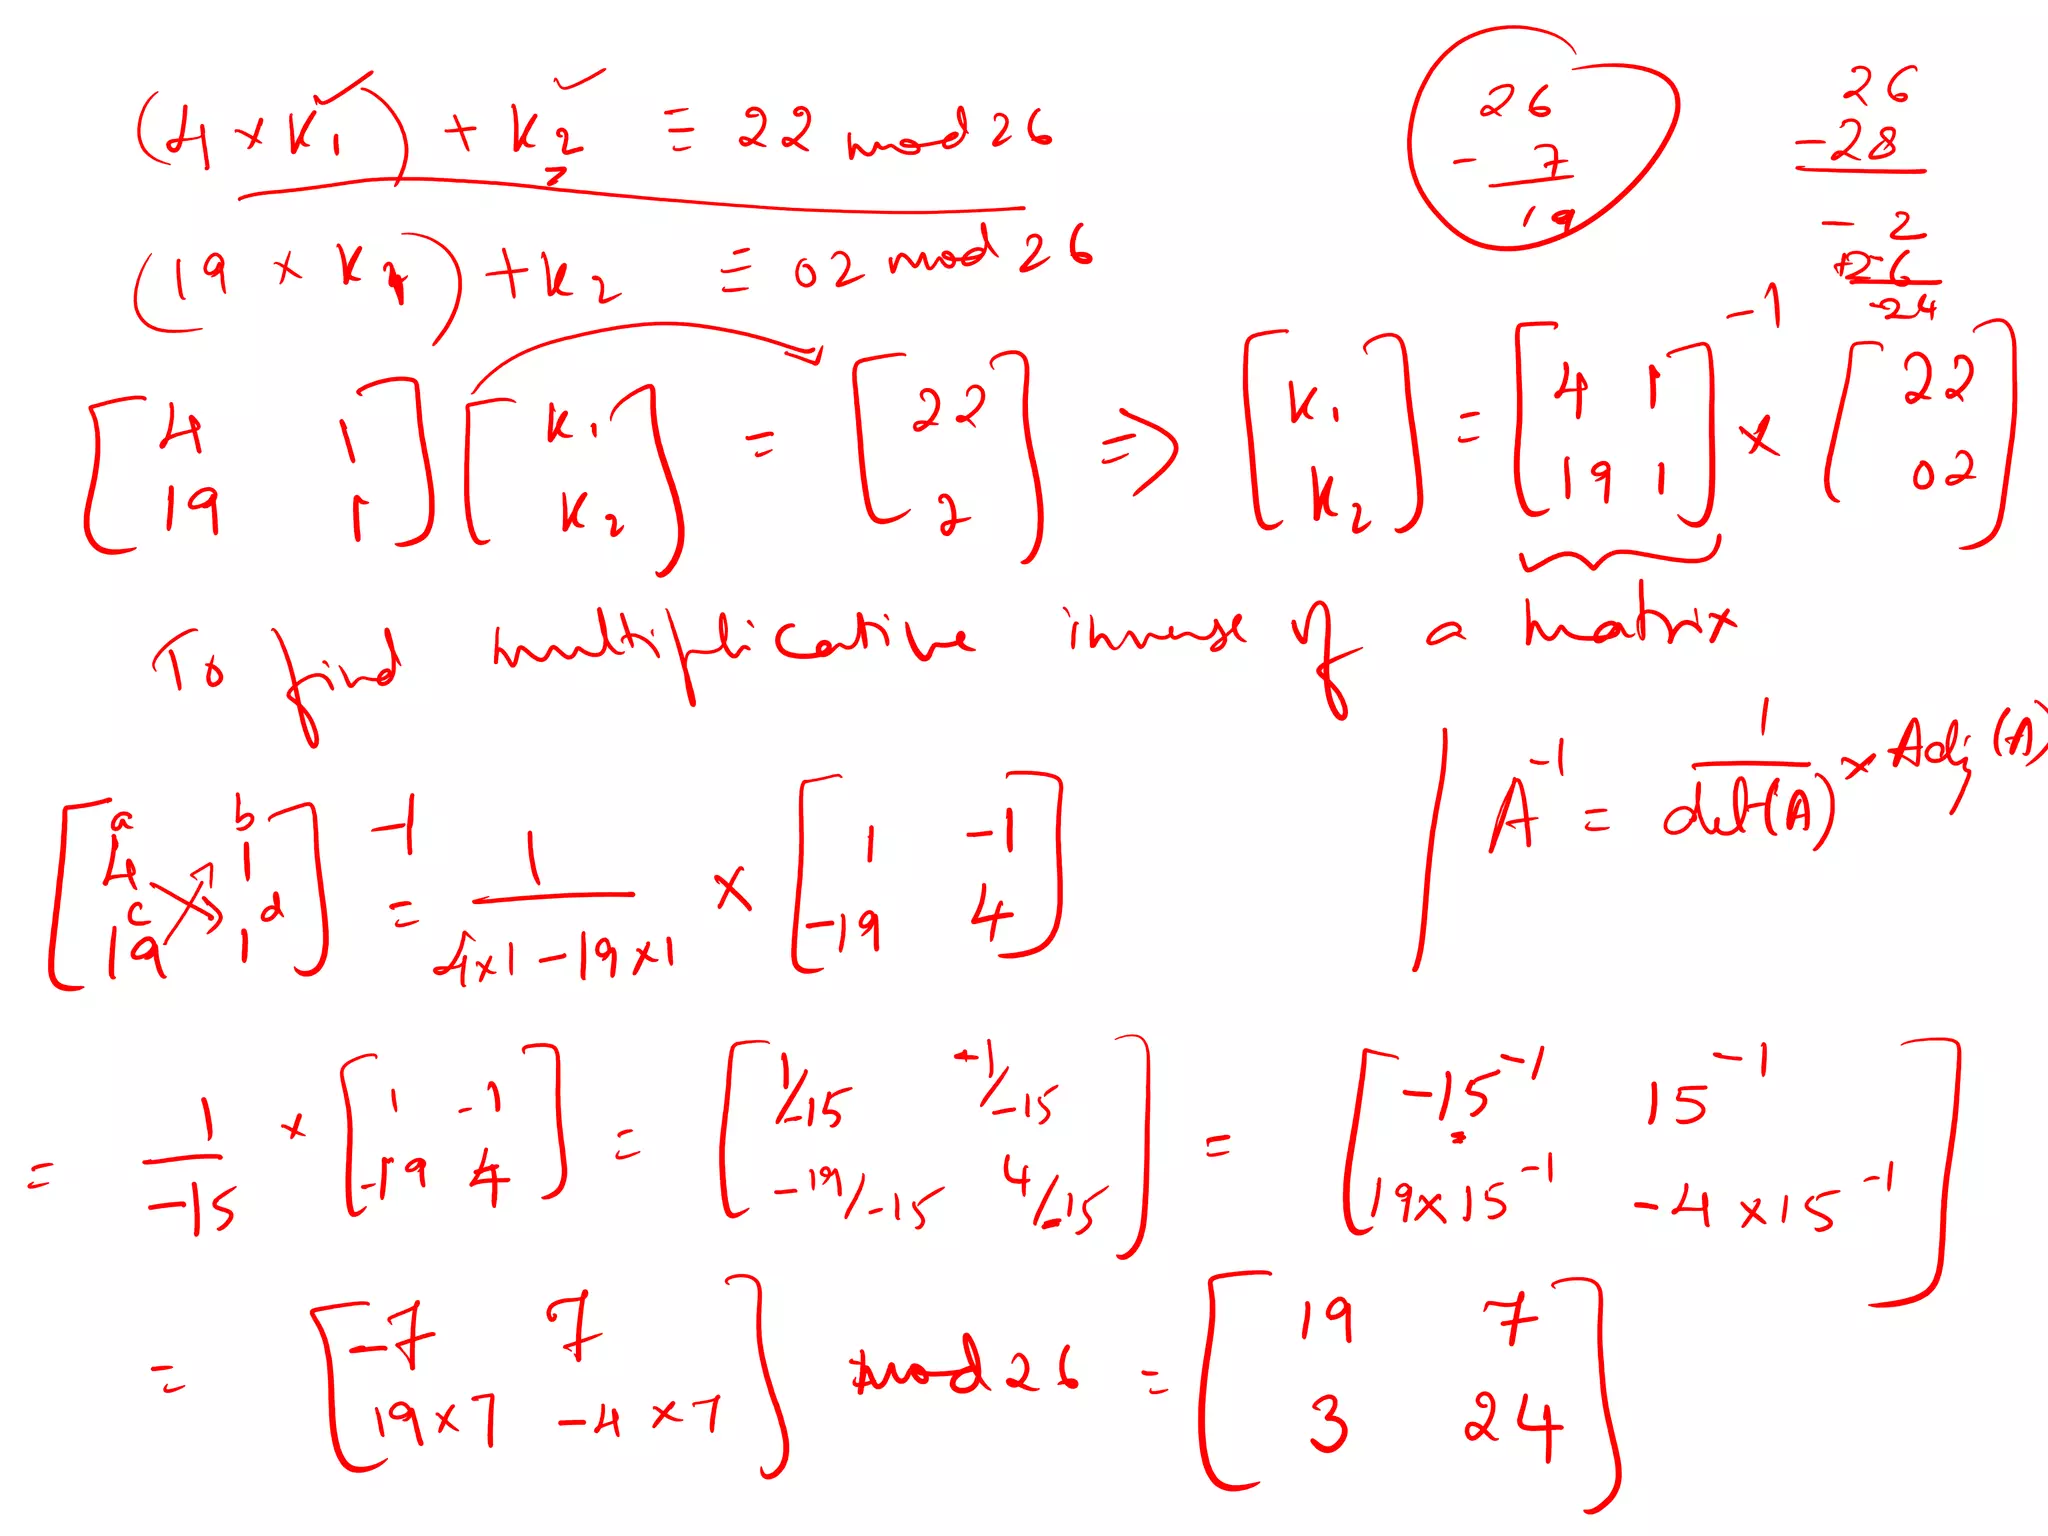 (4 × K1) + K2 ≡ 22 mod 26
(19 × K1) + K2 ≡ 02 mod 26
26
- 7
19
26
-28
- 2
+26
-24
[4 1; 19 1] [K1; K2] = [22; 2] ⇒ [K1; K2] = [4 1; 19 1]^-1 × [22; 02]
To find multiplicative inverse of a matrix
A^-1 = 1/det(A) × Adj(A)
a b
c d
[4 1; 19 1]^-1 = 1/(4×1-19×1) × [1 -1; -19 4]
= 1/-15 × [1 -1; -19 4] = [1/-15 +1/-15; -19/-15 4/-15] = [-15^-1 15^-1; 19×15^-1 -4×15^-1]
= [-7 7; 19×7 -4×7] mod 26 = [19 7; 3 24]